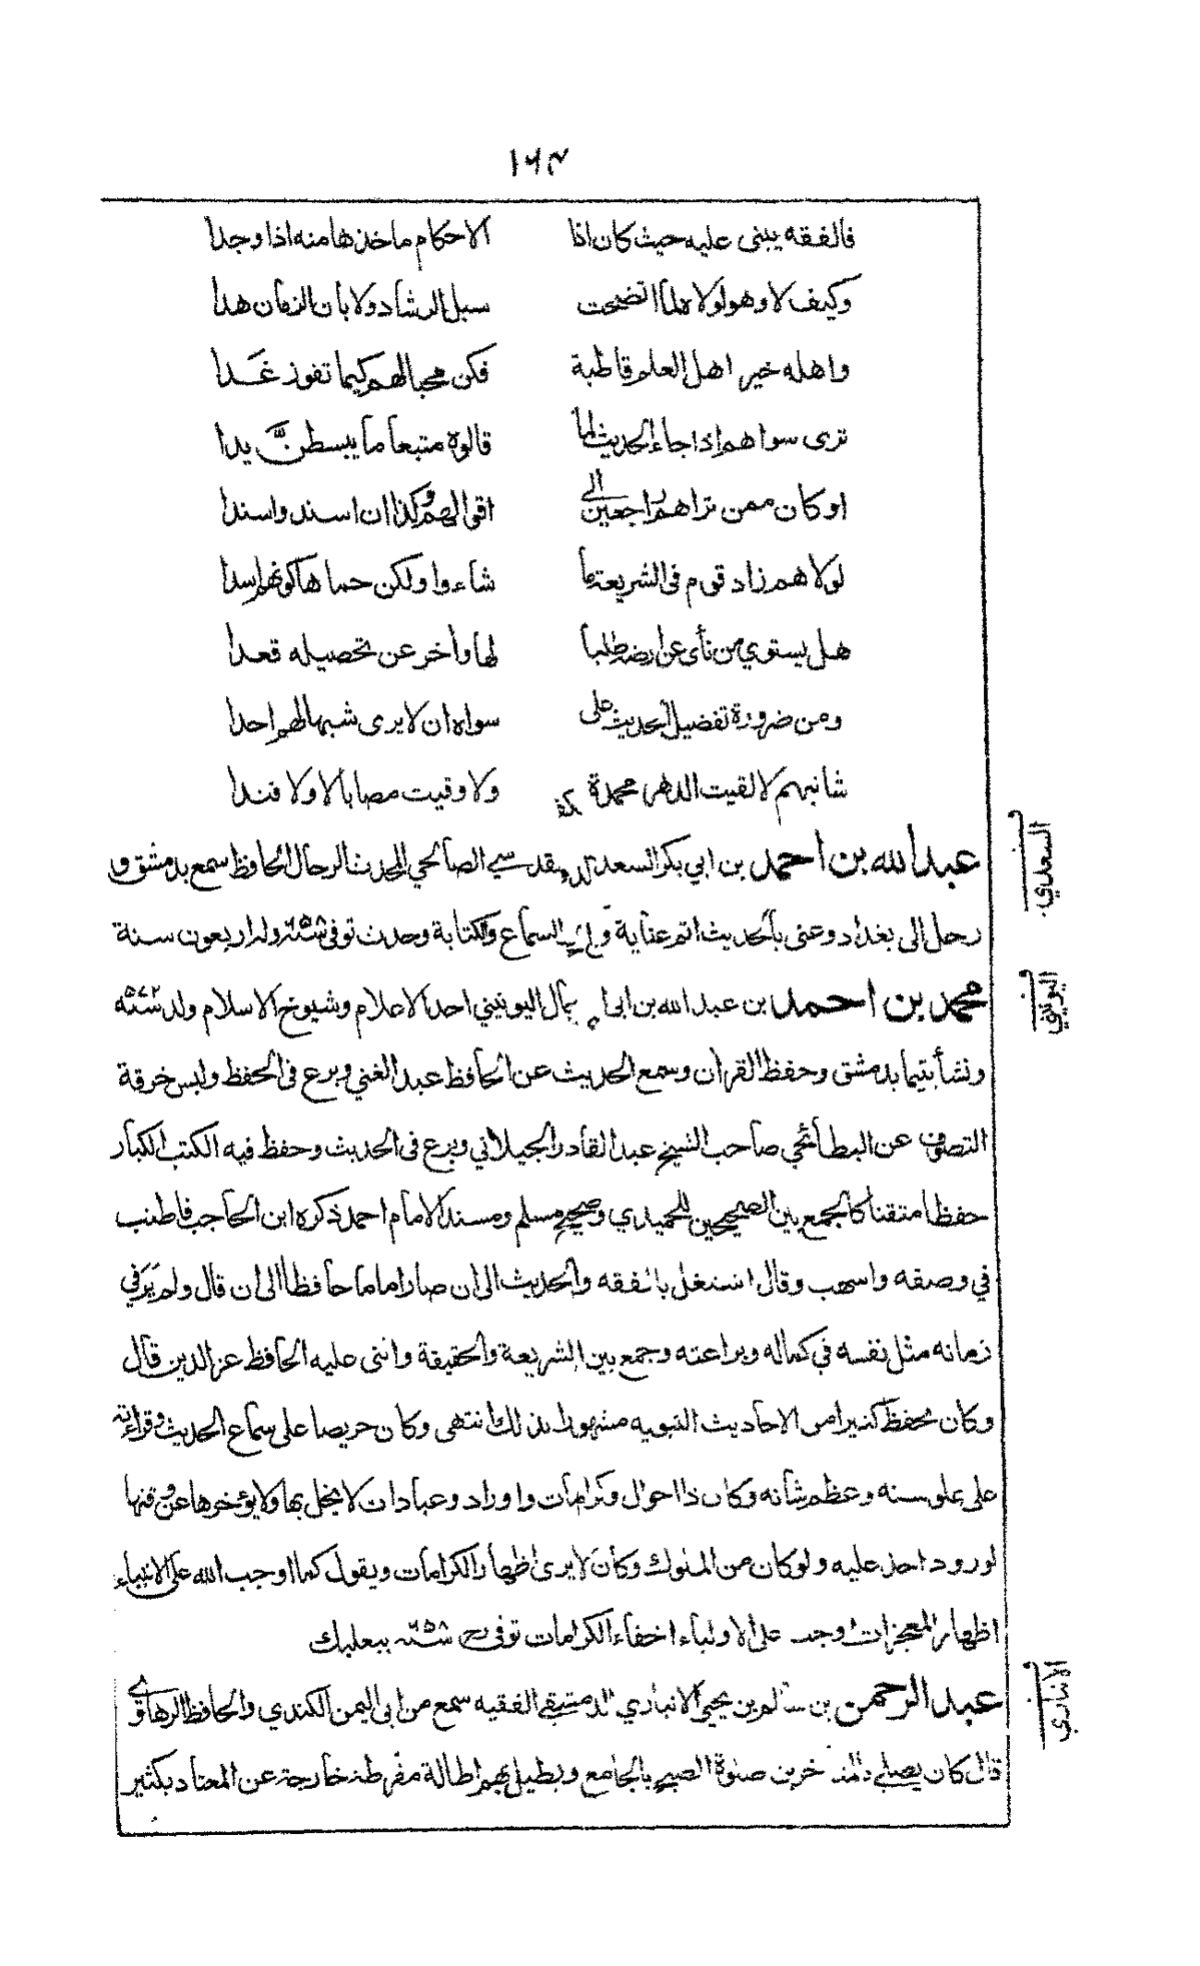 ١٦٣
فالفقه يبنى عليه حيث كان اذا الاحكام ماخذها منه اذا وجدا
وكيف لا وهو لولاه لما اتضحت سبل الرشاد ولا بان الزمان هدا
واهله خير اهل العلم قاطبة فكن محبا لهم كيما تفوز غدا
ترى سواهم اذا جاء الحديث لما قالوه متبعا ما يبسطن يدا
او كان ممن تراهم راجعين الى اقوالهم وكذا ان اسند واسندا
لولاهم زاد قوم في الشريعة ما شاءوا ولكن حماها كونهم اسدا
هل يستوي من نأى عن ارضه طلبا لها وأخر عن تحصيله قعدا
ومن ضرورة تفضيل الحديث على سواه ان لا يرى شبها لهم احدا
شانيهم لا لقيت الدهر محمدة ولا وقيت مصابا لا ولا فندا
السعدي
عبد الله بن احمد بن ابي بكر السعدي المقدسي الصالحي المحدث الرحال الحافظ سمع بدمشق و
رحل الى بغداد وعنى بالحديث اتم عناية السماع والكتابة وحدث توفى ٦٥٨ سنة وله اربعون سنة
اليونيني
محمد بن احمد بن عبد الله بن ابى الرجال اليونيني احد الاعلام وشيوخ الاسلام ولد سنة ٥٧٢
ونشأ يتيما بدمشق وحفظ القران وسمع الحديث عن الحافظ عبد الغني وبرع في الحفظ ولبس خرقة
التصوف عن البطائحي صاحب الشيخ عبد القادر الجيلاني وبرع في الحديث وحفظ فيه الكتب الكبار
حفظا متقنا كالجمع بين الصحيحين للحميدي وصحيح مسلم ومسند الامام احمد ذكره ابن الحاجب فاطنب
في وصفه واسهب وقال اشتغل بالفقه والحديث الى ان صار اماما حافظا الى ان قال ولم ير في
زمانه مثل نفسه في كماله وبراعته وجمع بين الشريعة والحقيقة واثنى عليه الحافظ عز الدين قال
وكان يحفظ كثيرا من الاحاديث النبويه مشهورا بذلك انتهى وكان حريصا على سماع الحديث وقراءته
على علو سنه وعظم شأنه وكان ذا احوال وكرامات واوراد وعبادات لا يخل بها ولا يؤخرها عن وقتها
لورود احد عليه ولو كان من الملوك وكان لا يرى اظهار الكرامات ويقول كما اوجب الله على الانبياء
اظهار المعجزات اوجب على الاولياء اخفاء الكرامات توفى سنة ٦٥٨ ببعلبك
الانباري
عبد الرحمن بن سالم بن يحيى الانباري الدمشقي الفقيه سمع من ابى اليمن الكندي والحافظ الرهاوي
قال كان يصلي صلوة الصبح بالجامع ويطيل بهم اطالة مفرطة خارجة عن المعتاد بكثير